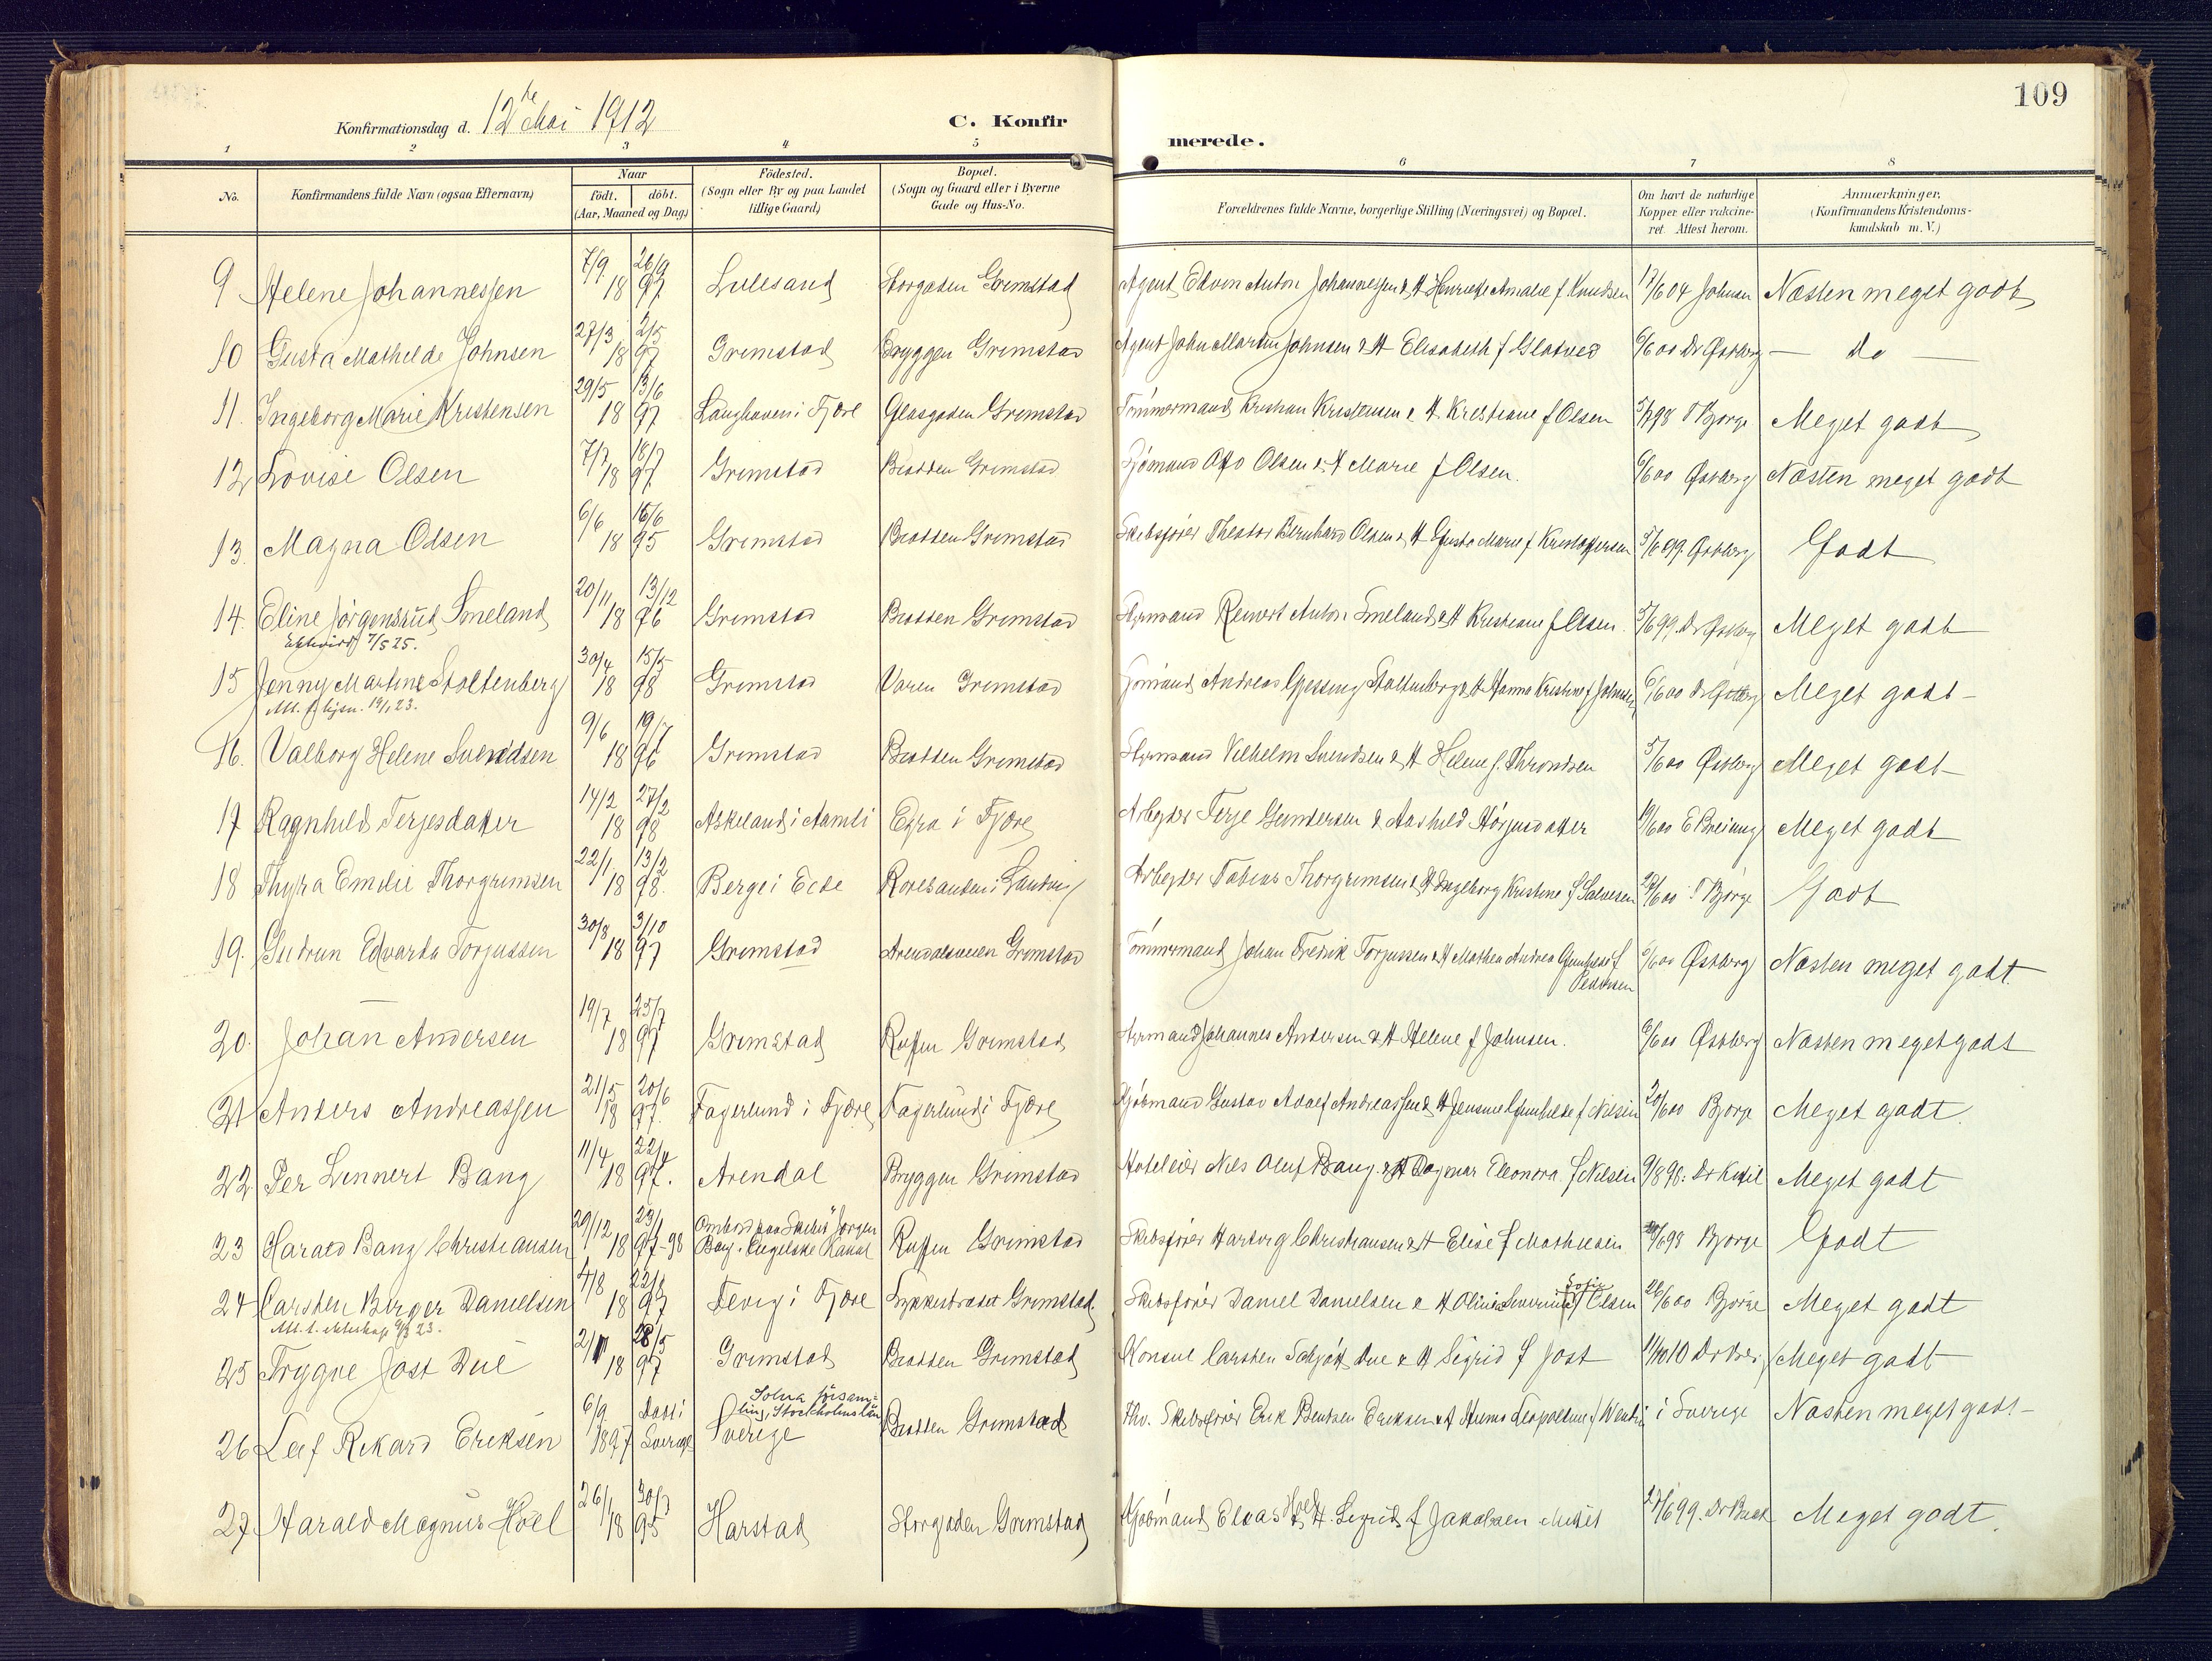 109
Konfirmationsdag d. 12te Mai 1912
C. Konfirmerede.
1 2 3 4 5 6 7 8
No.
Konfirmandens fulde Navn (ogsaa Efternavn)
Naar
födt. döbt.
(Aar, Maaned og Dag)
Födested.
(Sogn eller By og paa Landet
tillige Gaard)
Bopæl.
(Sogn og Gaard eller i Byerne
Gade og Hus-No.
Forældrenes fulde Navne, borgerlige Stilling (Næringsvei) og Bopæl.
Om havt de naturlige
Kopper eller vakcine-
ret. Attest herom.
Anmærkninger,
(Konfirmandens Kristendoms-
kundskab m. V.)
9 Helene Johannessen 7/9 1897 26/9 Lillesand Storgaden Grimstad Agent Edvin Anton Johannessen & H Henriette Amalie f Knudsen 17/6 04 Johnsen Næsten meget godt
10 Gusta Mathilde Johnsen 27/3 1897 2/5 Grimstad Bryggen Grimstad Agent John Martin Johnsen & H Elisabeth f Glatved 6/6 00 Dr Østberg — do —
11. Ingeborg Marie Kristensen 29/5 1897 13/6 Langhaven i Fjære Glasgaden Grimstad Tömmermand Kristian Kristensen & H. Kristiane f Olsen 5/7 98 T Bjorge Meget godt
12 Lovise Olsen 7/7 1897 18/7 Grimstad Biodden Grimstad Sjömand Otto Olsen & H Marie f Olsen. 6/6 00 Østberg Næsten meget godt
13. Magna Olsen 6/6 1895 16/6 Grimstad Biodden Grimstad Skibsförer Theodor Bernhard Olsen & H Gusta Marie f Kristoffersen 5/6 99. Østberg Godt
14. Eline Jörgensrud Smeland 20/11 1896 13/12 Grimstad Biodden Grimstad Styrmand Reinert Anton Smeland & H Kristiane f Olsen. 5/6 99. Dr Østberg Meget godt
7/5 25.
15 Jenny Martine Stoltenberg 30/4 1898 15/5 Grimstad Varen Grimstad Sjömand Andreas Gjessing Stoltenberg & H Hanna Kristine f Johnsen 6/6 00 Dr Østberg Meget godt -
Att. f. 19/1 23.
16. Valborg Helene Svendsen 9/6 1896 19/7 Grimstad Biodden Grimstad Styrmand Vilhelm Svendsen & H Helene f. Throndsen 5/6 00 Østberg Meget godt -
17 Ragnhild Terjesdatter 14/2 1898 27/2 Askeland i Aamli Egra i Fjære Arbeider Terje Gundersen & Aashild Jörgensdatter 19/6 00 E Breiung Meget godt
18 Thyra Emilie Thorgrimsen 22/1 1898. 13/2 Berge i Eide Roresanden i Landvig Arbeider Tobias Thorgrimsen & H Ingeborg Kristine f Salvesen /6 00 T Bjorge Godt
19. Gudrun Edvarda Torjussen 30/8 1897 3/10 Grimstad Arendalsveien Grimstad Tömmermand Johan Fredrik Torjussen & H Mathea Andrea Gunhilde f
Pedersen 6/6 00 Østberg Næsten meget godt.
20. Johan Andersen 19/7 1897 25/7 Grimstad Roffen Grimstad Styrmand Johannes Andersen & H Helene f Johnsen. 6/6 00 Østberg Næsten meget godt
21 Anders Andreassen 21/5 1897. 20/6 Fagerlund i Fjære Fagerlund i Fjære Kjöbmand Gustav Adolf Andreassen & H Jensine Gunhilde f Nilsen 20/6 00 Bjorge Meget godt.
22 Per Linnert Bang 11/4 1897. 22/4 Arendal Bryggen Grimstad Hoteleier Nils Oluf Bang & H Dagmar Eleonora f Nilsen 9/8 98. Dr Meget godt
23 Harald Bang Christiansen 29/12 1897-98 23/1 Ombord paa Skibet "Jörgen
Bang" i Engelske Kanal Roffen Grimstad Skibsförer Hartvig Christiansen & H Elise f Mathiesen 28/6 98 Bjorge Godt
24 Carsten Birger Danielsen 4/8 1897 22/8 Fevig i Fjære Lykkestrædet Grimstad. Skibsförer Daniel Danielsen & H Oline Severine Sofie f Olsen 26/6 00 Bjorge Meget godt
Att. t. ekteskap 9/3 23.
25 Trygve Jost Due 2/ 1897 28/5 Grimstad Biodden Grimstad Konsul Carsten Due & H Sigrid f Jost 11/10 10 Meget godt
26 Leif Rikard Eriksen 6/9 1897 Döbt i Sverige Solna försam-
ling, Stockholms län
Sverige Biodden Grimstad Fhv. Skibsförer Erik Bentsen Eriksen & H Leopoldine f i Sverige Næsten meget godt -
27 Harald Magnus Hoel 26/1 1895 30/7 Harstad Storgaden Grimstad Kjöbmand Elias Hoel & H. Sigrid f Jakobsen 27/6 99. Dr Meget godt.